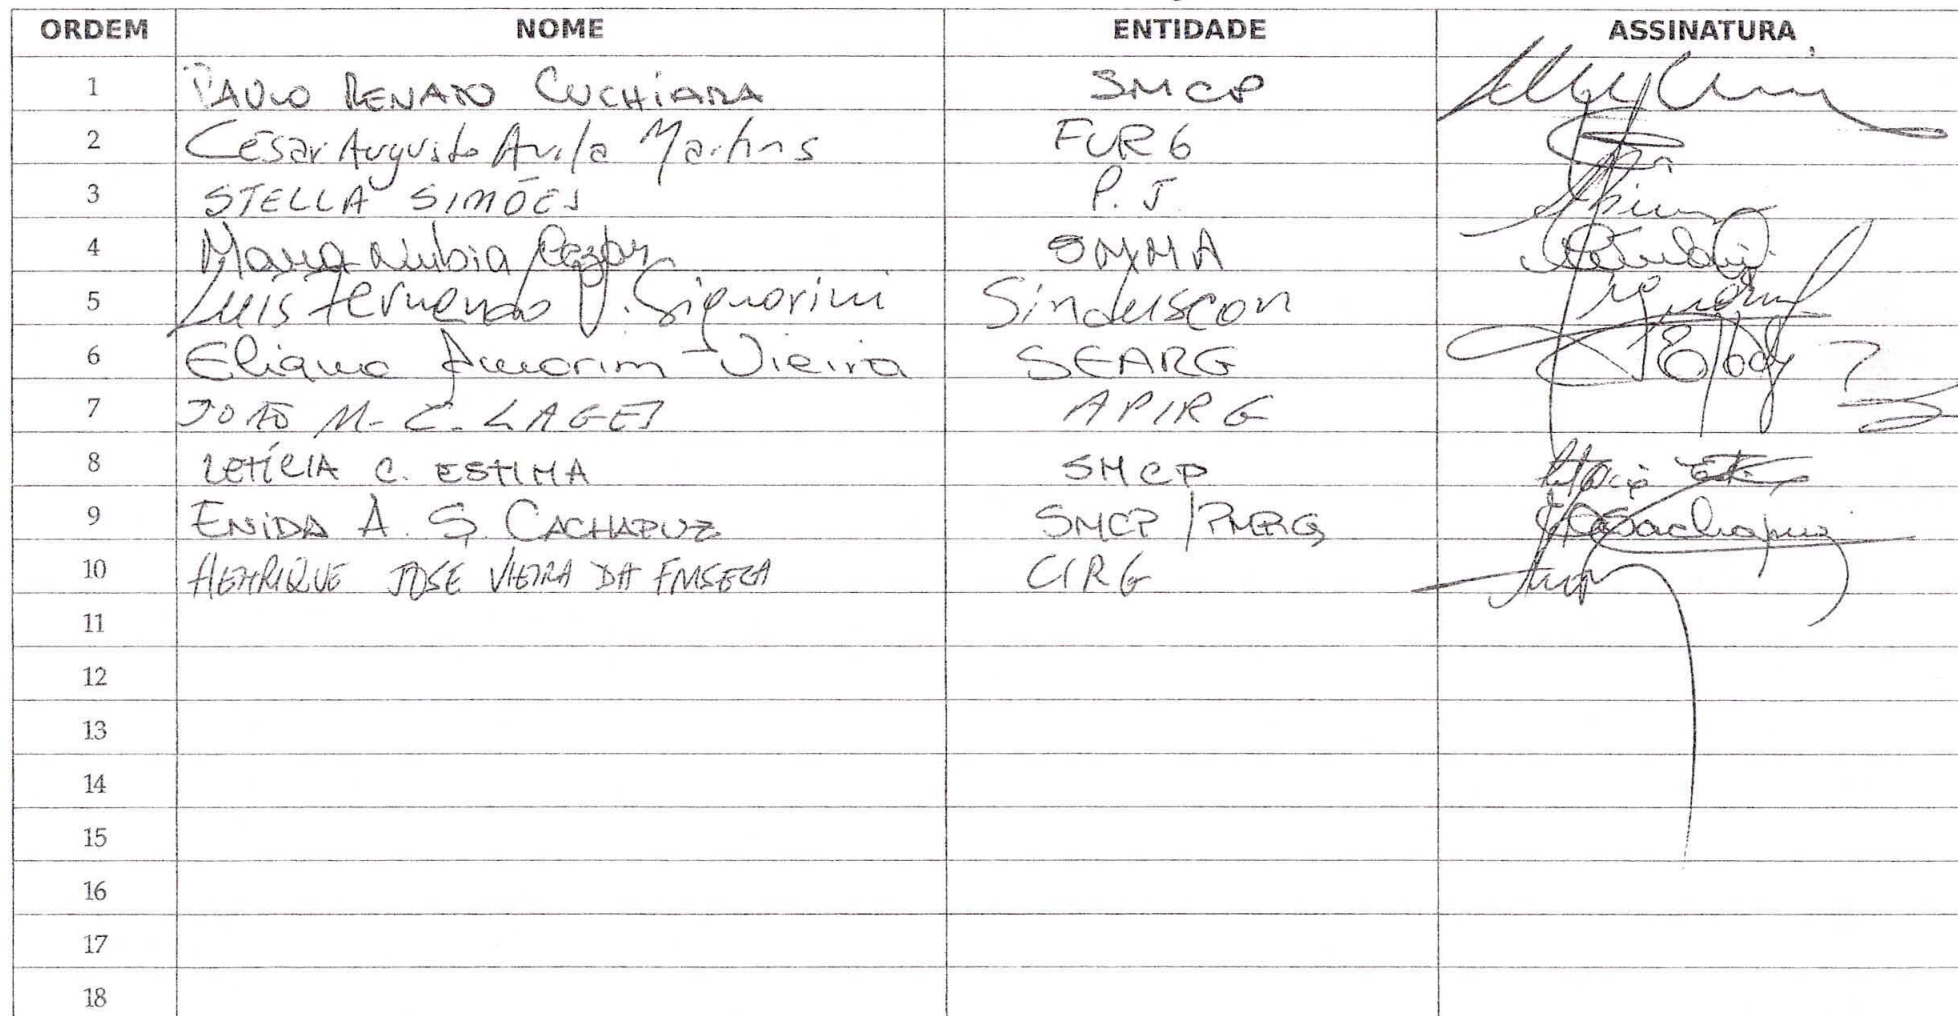 ORDEM NOME ENTIDADE ASSINATURA
1 PAULO RENATO CUCHIARA SMCP
2 César Augusto Avila Martins FURG
3 STELLA SIMÕES P.J
4 Maria Nubia SMMA
5 Luis Fernando V. Signorini Sinduscon
6 Eliana Amorim Vieira SEARG
7 JOÃO M. C. LAGES APIRG
8 LETÍCIA C. ESTIMA SMCP
9 ENIDA A. S. CACHAPUZ SMCP/PMRG
10 HENRIQUE JOSE VIEIRA DA FONSECA CIRG
11
12
13
14
15
16
17
18